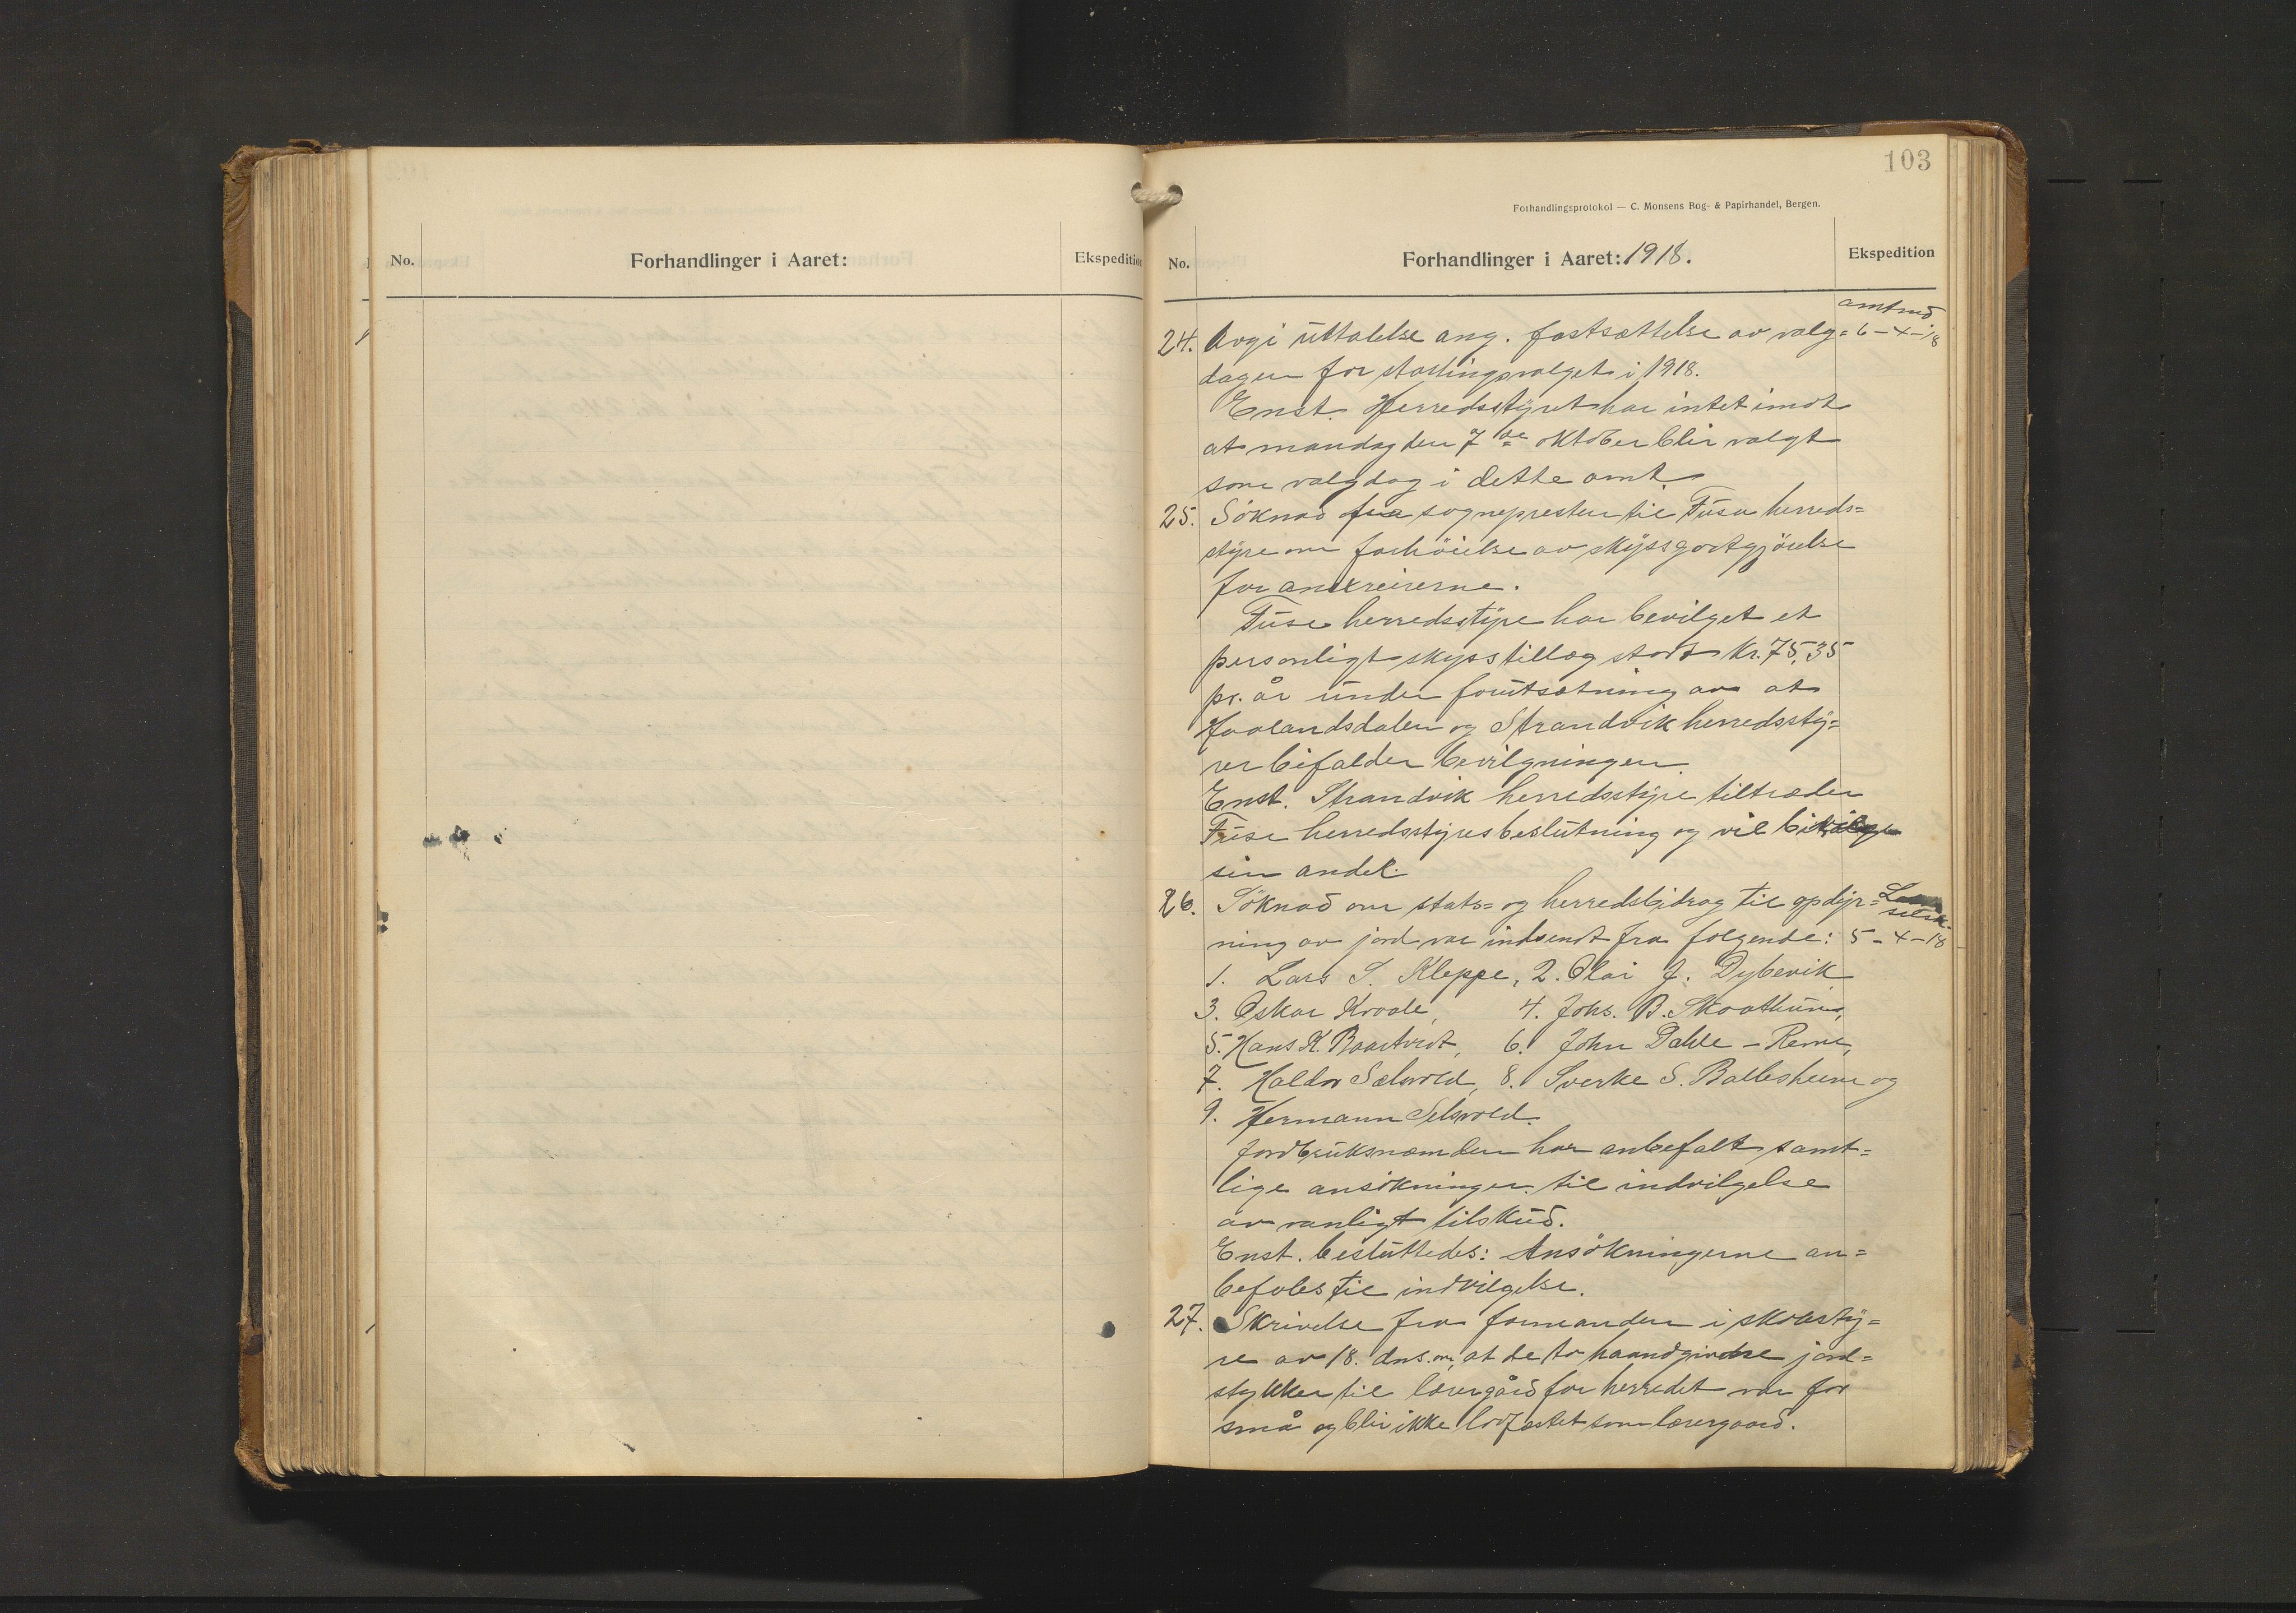 No.
Forhandlinger i Aaret:
Ekspedition
103
Forhandlingsprotokol — C. Monsens Bog- & Papirhandel, Bergen.
No.
Forhandlinger i Aaret: 1918.
Ekspedition
amtmd
24. Avgi uttalelse ang. fastsættelse av valg= 6-4-18
dagen for stortingsvalget i 1918.
Enst. Herredsstyret har intet imot
at mandag den 7de oktober blir valgt
som valgdag i dette amt.
25. Söknad fra sognepresten til Fusa herreds=
styre om forhöielse av skyssgodtgjörelse
for annexreiserne.
Fuse herredsstyre har bevilget et
personligt skysstillæg stort kr. 75,35
pr. år under forutsætning av at
Haalandsdalen og Strandvik herredssty=
rer bifalder bevilgningen.
Enst. Strandvik herredsstyre tiltræder
Fuse herredsstyres beslutning og vil bevilge
sin andel.
26. Söknad om stats= og herredsbidrag til opdyr= Land
selsk.
ning av jord var indsendt fra folgende: 5-4-18
1. Lars S. Kleppe, 2. Olai J. Dybevik
3. Oskar Kvale, 4. Johs. B. Skaathun,
5. Hans K. Baartvedt, 6. John Dahle - Reme,
7. Haldor Sælsvold, 8. Sverke S. Ballesheim og
9. Hermann Selsvold.
Jordbruksnæmden har anbefalt samt=
lige ansökninger til indvilgelse
av vanligt tilskud.
Enst. besluttedes: Ansökningerne an=
befoles til indvilgelse.
27. Skrivelse fra formanden i skolesty=
re av 18. dns. om, at de to haandgivne jord=
stykker til lærergård for herredet var for
små og blir ikke lovfæstet som lærergaard.